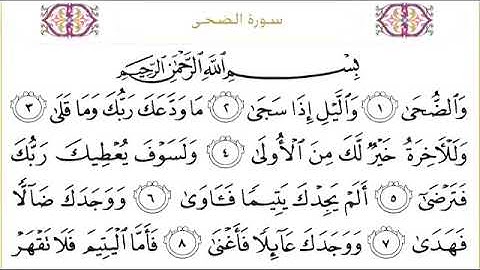 سورة الضحى
بِسْمِ ٱللَّهِ ٱلرَّحْمَٰنِ ٱلرَّحِيمِ
وَٱلضُّحَىٰ ١ وَٱلَّيْلِ إِذَا سَجَىٰ ٢ مَا وَدَّعَكَ رَبُّكَ وَمَا قَلَىٰ ٣
وَلَلْءَاخِرَةُ خَيْرٌ لَّكَ مِنَ ٱلْأُولَىٰ ٤ وَلَسَوْفَ يُعْطِيكَ رَبُّكَ
فَتَرْضَىٰٓ ٥ أَلَمْ يَجِدْكَ يَتِيمًا فَـَٔاوَىٰ ٦ وَوَجَدَكَ ضَآلًّا
فَهَدَىٰ ٧ وَوَجَدَكَ عَآئِلًا فَأَغْنَىٰ ٨ فَأَمَّا ٱلْيَتِيمَ فَلَا تَقْهَرْ